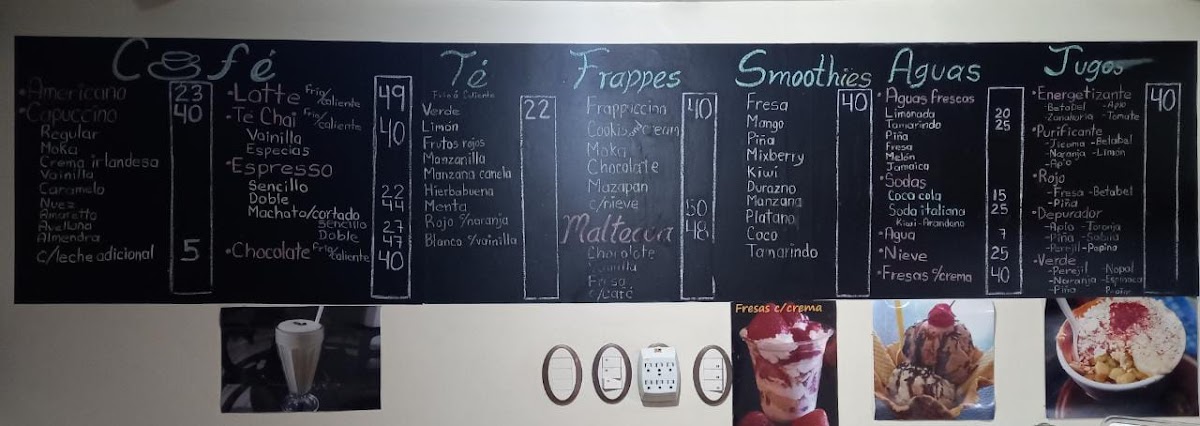 Café
•Americano 23
•Capuccino 40
Regular
Moka
Crema irlandesa
Vainilla
Caramelo
Nuez
Amaretto
Avellana
Almendra
C/leche adicional 5
•Latte Frío/caliente 49
•Té Chai Frio/caliente 40
Vainilla
Especias
•Espresso
Sencillo 22
Doble 44
Machato/cortado
Sencillo 27
Doble 47
•Chocolate Frio/caliente 40
Té
Frío ó Caliente
Verde 22
Limón
Frutos rojos
Manzanilla
Manzana canela
Hierbabuena
Menta
Rojo c/naranja
Blanco c/vainilla
Frappes
Frappiccino 40
Cookies & cream
Moka
Chocolate
Mazapan
c/nieve 50
Malteada 48
Chocolate
Vainilla
Fresa
c/café
Smoothies
Fresa 40
Mango
Piña
Mixberry
Kiwi
Durazno
Manzana
Platano
Coco
Tamarindo
Aguas
•Aguas frescas
Limonada 20
Tamarindo 25
Piña
Fresa
Melón
Jamaica
•Sodas
Coca cola 15
Soda italiana 25
Kiwi-Arandano
•Agua 7
•Nieve 25
•Fresas c/crema 40
Jugos
•Energetizante 40
-Betabel -Apio
-Zanahoria -Tomate
•Purificante
-Jicama -Betabel
-Naranja -Limón
-Apio
•Rojo
-Fresa -Betabel
-Piña
•Depurador
-Apio -Toronja
-Piña -Sabila
-Perejil -Papina
•Verde
-Perejil -Nopal
-Naranja -Espinaca
-Piña
Fresas c/crema